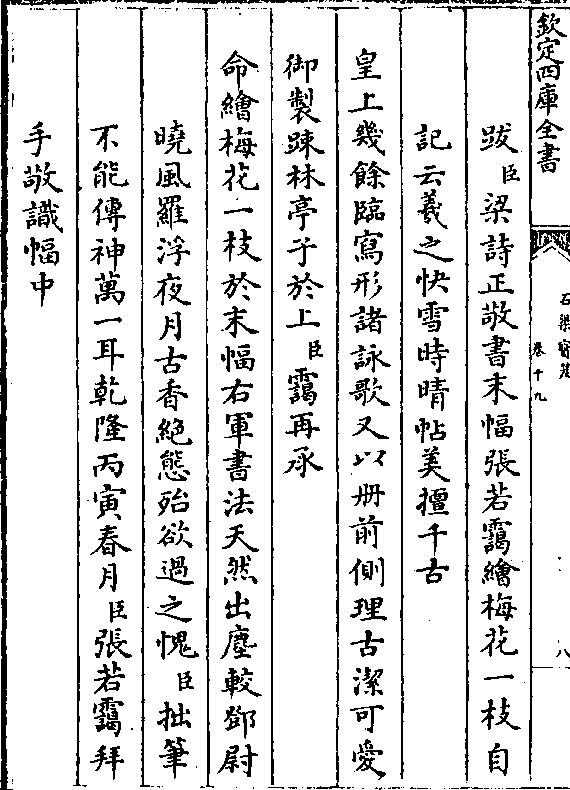 欽定四庫全書
石渠寶笈
卷十九
八
跋臣梁詩正敬書末幅張若靄繪梅花一枝自
記云羲之快雪時晴帖美擅千古
皇上幾餘臨寫形諸詠歌又以册前側理古潔可愛
御製疎林亭子於上臣靄再承
命繪梅花一枝於末幅右軍書法天然出塵較鄧尉
曉風羅浮夜月古香絶態殆欲過之愧臣拙筆
不能傳神萬一耳乾隆丙寅春月臣張若靄拜
手敬識幅中